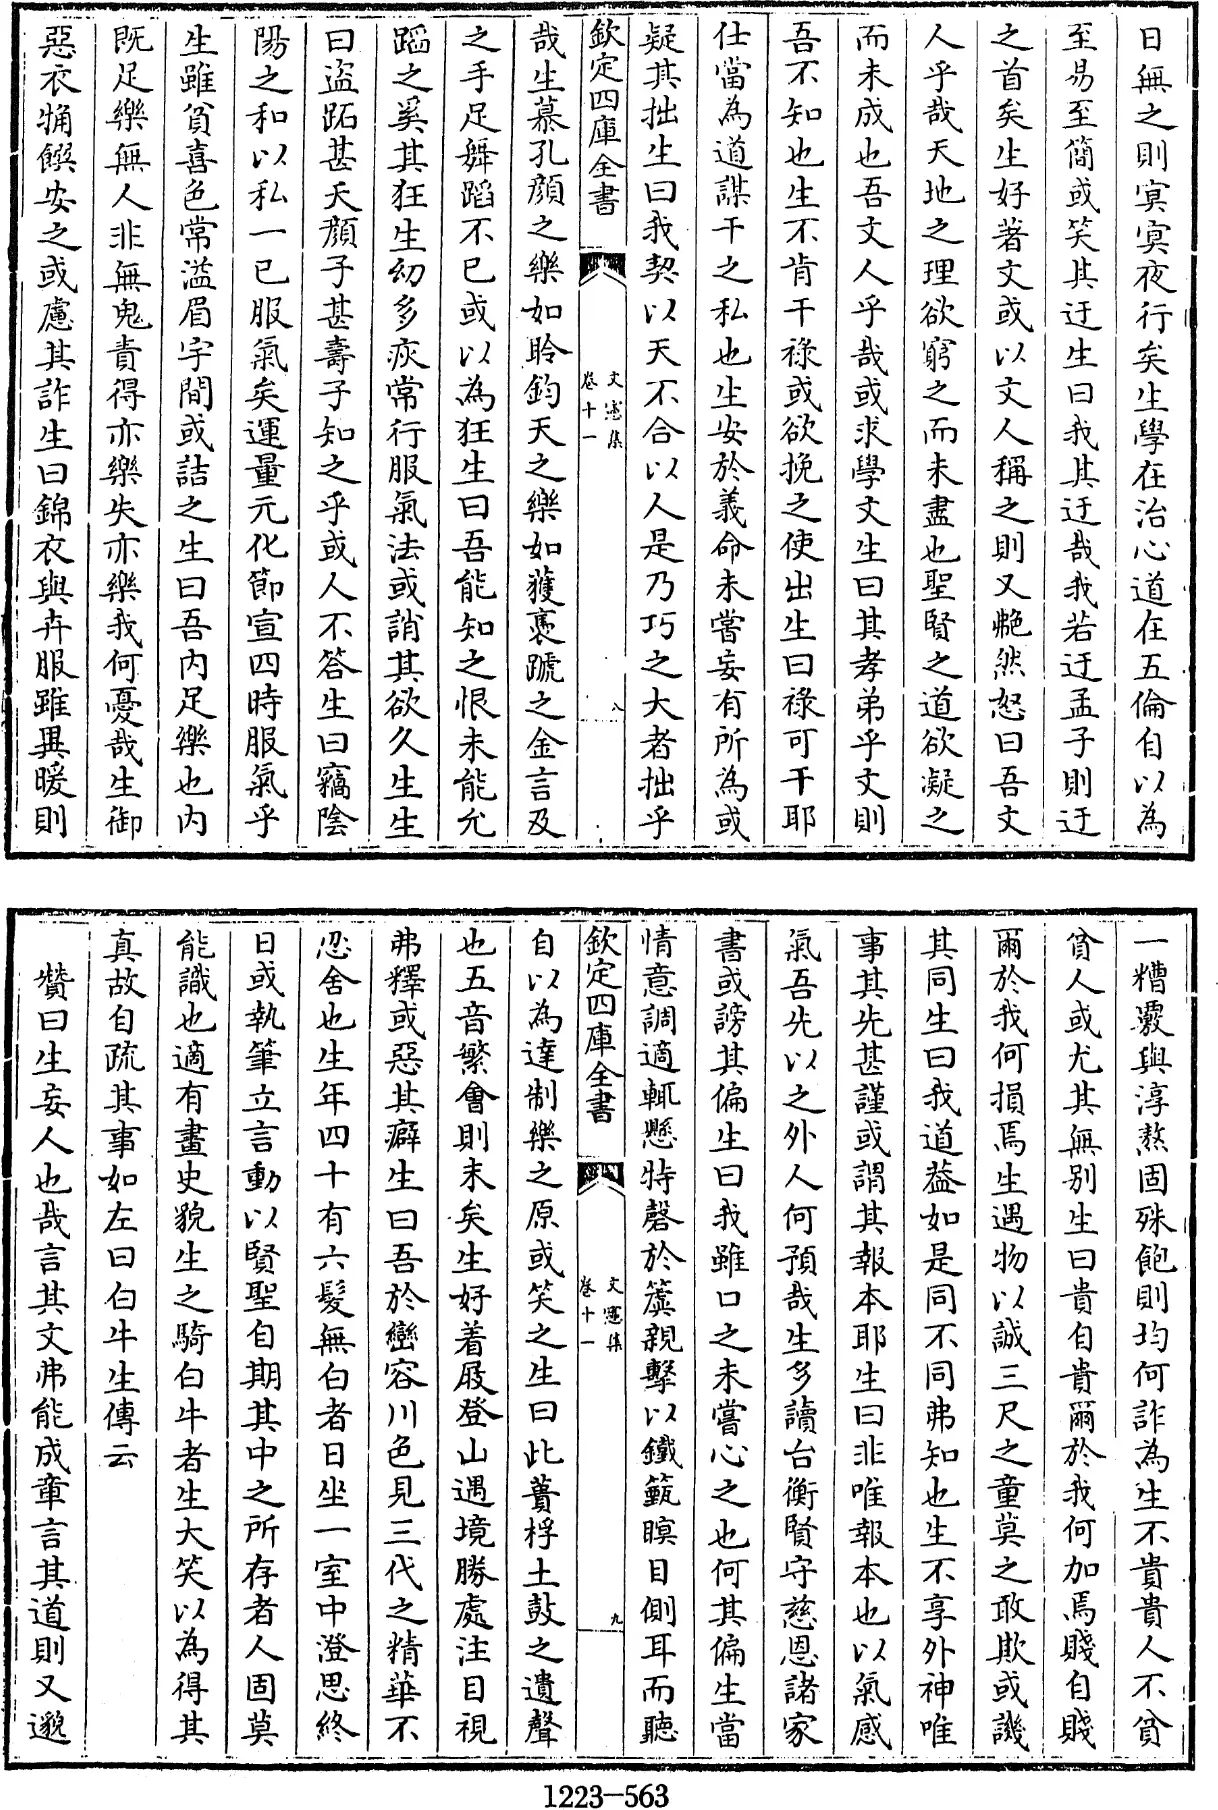 日無之則㝠㝠夜行矣生學在治心道在五倫自以為
至易至簡或笑其迂生曰我其迂哉我若迂孟子則迂
之首矣生好著文或以文人稱之則又艴然怒曰吾文
人乎哉天地之理欲窮之而未盡也聖賢之道欲凝之
而未成也吾文人乎哉或求學文生曰其孝弟乎文則
吾不知也生不肯干祿或欲挽之使出生曰祿可干耶
仕當為道謀干之私也生安於義命未嘗妄有所為或
疑其拙生曰我契以天不合以人是乃巧之大者拙乎
欽定四庫全書
文憲集
卷十一
八
哉生慕孔顔之樂如聆鈞天之樂如獲褭蹏之金言及
之手足舞蹈不已或以為狂生曰吾能知之恨未能允
蹈之奚其狂生幼多疢常行服氣法或誚其欲久生生
曰盜跖甚夭顔子甚壽子知之乎或人不答生曰竊陰
陽之和以私一己服氣矣運量元化節宣四時服氣乎
生雖貧喜色常溢眉宇間或詰之生曰吾内足樂也内
既足樂無人非無鬼責得亦樂失亦樂我何憂哉生御
惡衣觕饌安之或慮其詐生曰錦衣與卉服雖異暖則
一糟覈與淳熬固殊飽則均何詐為生不貴貴人不貧
貧人或尤其無别生曰貴自貴爾於我何加焉賤自賤
爾於我何損焉生遇物以誠三尺之童莫之敢欺或譏
其同生曰我道葢如是同不同弗知也生不享外神唯
事其先甚謹或謂其報本耶生曰非唯報本也以氣感
氣吾先以之外人何預哉生多讀台衡賢守慈恩諸家
書或謗其偏生曰我雖口之未嘗心之也何其偏生當
情意調適輒懸特磬於簴親擊以鐵甀瞑目側耳而聽
欽定四庫全書
文憲集
卷十一
九
自以為達制樂之原或笑之生曰此蕢桴土鼓之遺聲
也五音繁會則末矣生好着屐登山遇境勝處注目視
弗釋或惡其癖生曰吾於巒容川色見三代之精華不
忍舍也生年四十有六髮無白者日坐一室中澄思終
日或執筆立言動以賢聖自期其中之所存者人固莫
能識也適有畫史貌生之騎白牛者生大笑以為得其
真故自疏其事如左曰白牛生傳云
賛曰生妄人也哉言其文弗能成章言其道則又邈
1223—563